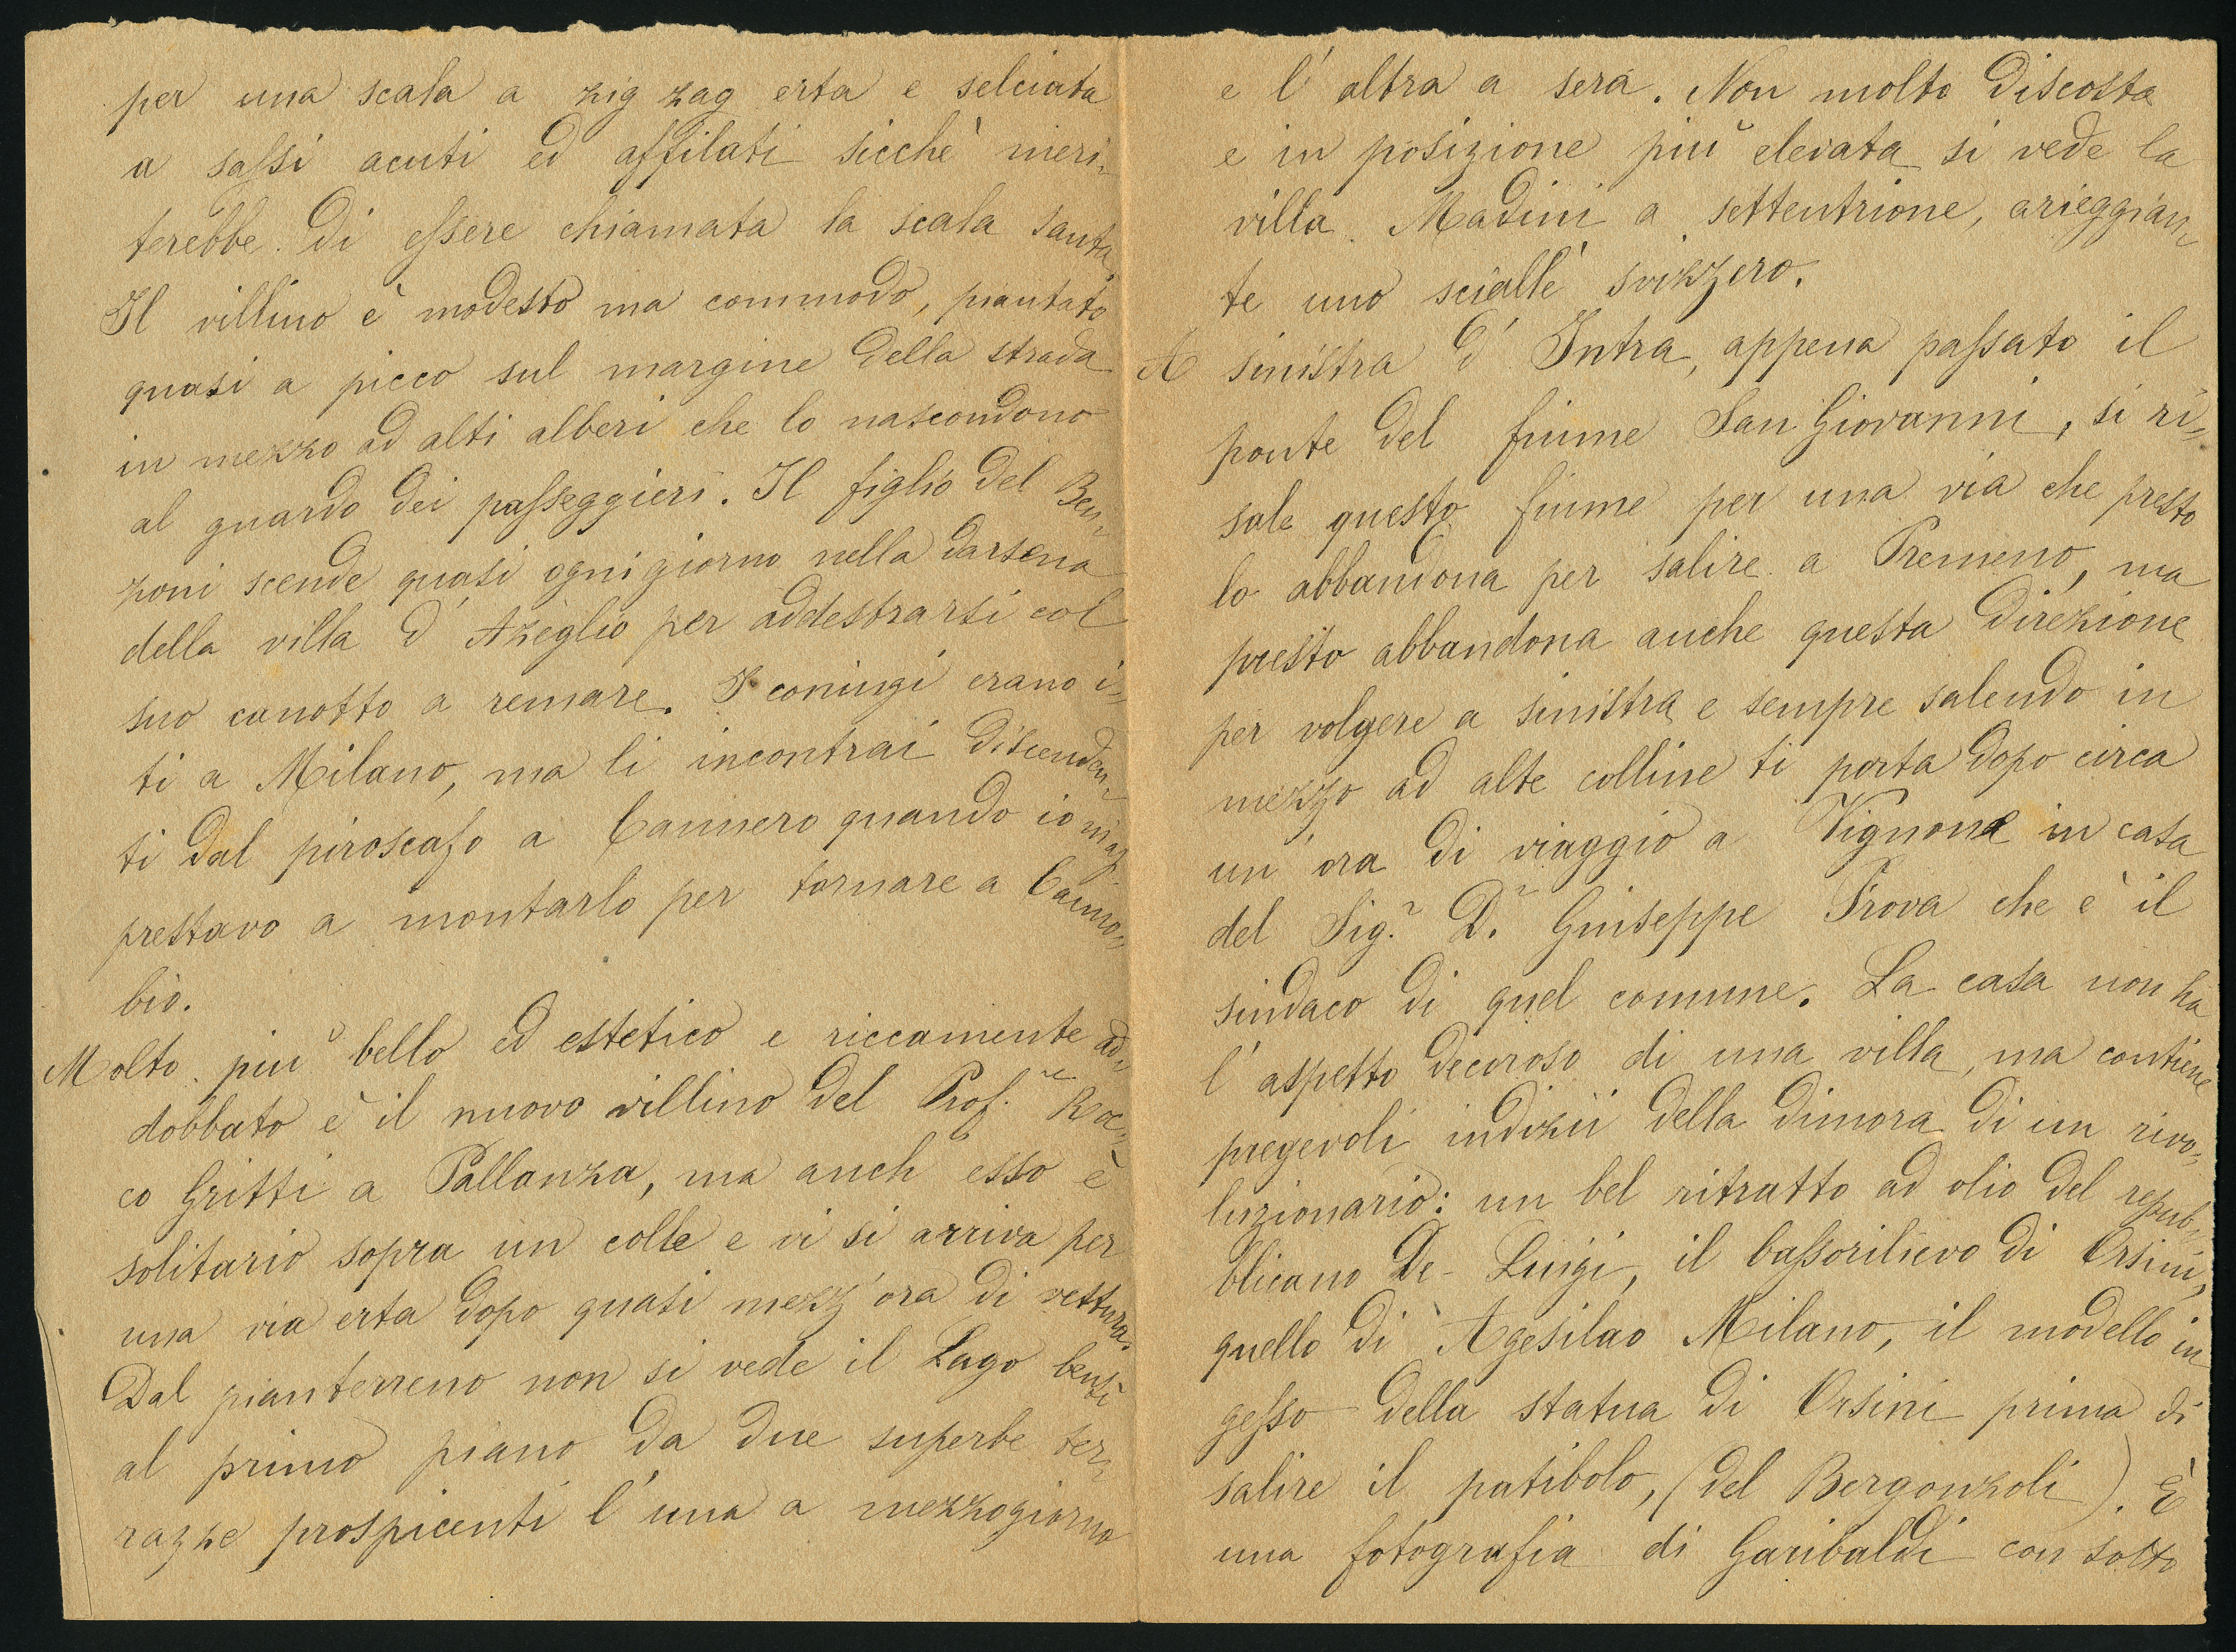 per una scala a zig zag erta e selciata
a sassi acuti ed affilati sicchè meri-
terebbe di essere chiamata la scala santa.
Il villino è modesto ma commodo, piantato
quasi a picco sul margine della strada
in mezzo ad alti alberi che lo nascondono
al guardo dei passeggieri. Il figlio del Ben-
zoni scende quasi ogni giorno nella darsena
della villa d'Azeglio per addestrarsi col
suo canotto a remare. I coniugi erano i-
ti a Milano, ma li incontrai discenden-
ti dal piroscafo a Cannero quando io m'ap-
prestavo a montarlo per tornare a Canno-
bio.
Molto più bello ed estetico e riccamente ad-
dobbato è il nuovo villino del Prof.re Roc-
co Gritti a Pallanza, ma anch'esso è
solitario sopra un colle e vi si arriva per
una via erta dopo quasi mezz'ora di vettura.
Dal pianterreno non si vede il Lago bensì
al primo piano da due superbe ter-
razze prospicenti l'una a mezzogiorno
e l'altra a sera. Non molto discosta
e in posizione più elevata si vede la
villa Madini a settentrione, arieggian-
te uno sciallè svizzero.
A sinistra d'Intra, appena passato il
ponte del fiume San Giovanni, si ri-
sale questo fiume per una via che presto
lo abbandona per salire a Premeno, ma
presto abbandona anche questa direzione
per volgere a sinistra e sempre salendo in
mezzo ad alte colline ti porta dopo circa
un'ora di viaggio a Vignone in casa
del Sig.r D.r Giuseppe Prova che è il
sindaco di quel comune. La casa non ha
l'aspetto decoroso di una villa, ma contiene
pregevoli indizii della dimora di un rivo-
luzionario: un bel ritratto ad olio del repub-
blicano De-Luigi, il bassorilievo di Orsini,
quello di Agesilao Milano, il modello in
gesso della statua di Orsini prima di
salire il patibolo, (del Bergonzoli). E
una fotografia di Garibaldi con sotto